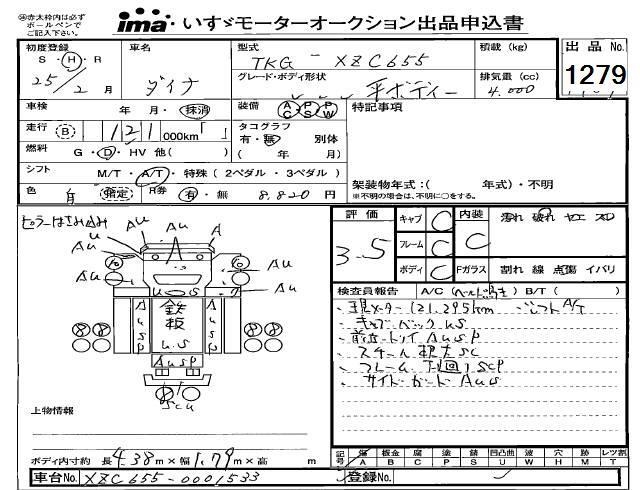 ㊟赤太枠内は必ず
ボールペンで
ご記入下さい。
ima いすゞモーターオークション出品申込書
初度登録 車名 型式 積載 (kg) 出品 No.
S・H・R ダイナ TKG - XZC655
25年2月 グレード・ボディ形状 平ボディー 排気量 (cc) 4.000 1279
車検 年・月・抹消 装備 AC PS PW 特記事項
走行 B 121,000km タコグラフ 有・無 別体
燃料 G・D・HV 他( ) ( 年 月)
シフト M/T・A/T・特殊 ( 2ペダル・3ペダル )
色 指定 R券 有・無 8,820 円 架装物年式:( 年式)・不明
※不明の場合は、不明に○をする。
ピラーはさみ込み
評価 3.5 キャブ C 内装 C 汚れ 破れ ヤエ スレ
フレーム C
ボディ C Fガラス 割れ 線 点傷 イバリ
u Au A
Au Au
Au Au
検査員報告 A/C ( ) B/T ( )
現メーター121.295km シフトA/T
キャブバックUS
鉄板
AuSP
US
AuSP
スチール 腐大SC
フレーム下回りSCP
サイドガードAUS
SCU
上物情報
ボディ内寸約 長 4.38m×幅 1.79m×高 m
記号 傷 A 板金 B 腐 C 塗 P 錆 S 凹凸曲 U 波 W 穴 H 無 M レツ割 T
車台No. XZC655-0001533 登録No.